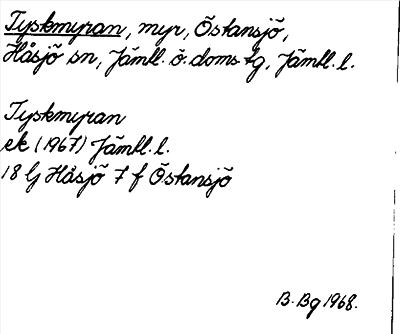 Tyskmyran, myr, Östansjö,
Håsjö sn, Jämtl. ö. doms tg, Jämtl. l.
Tyskmyran
ek (1967) Jämtl. l.
18 Gj Håsjö 7 f Östansjö
B. Bg 1968.